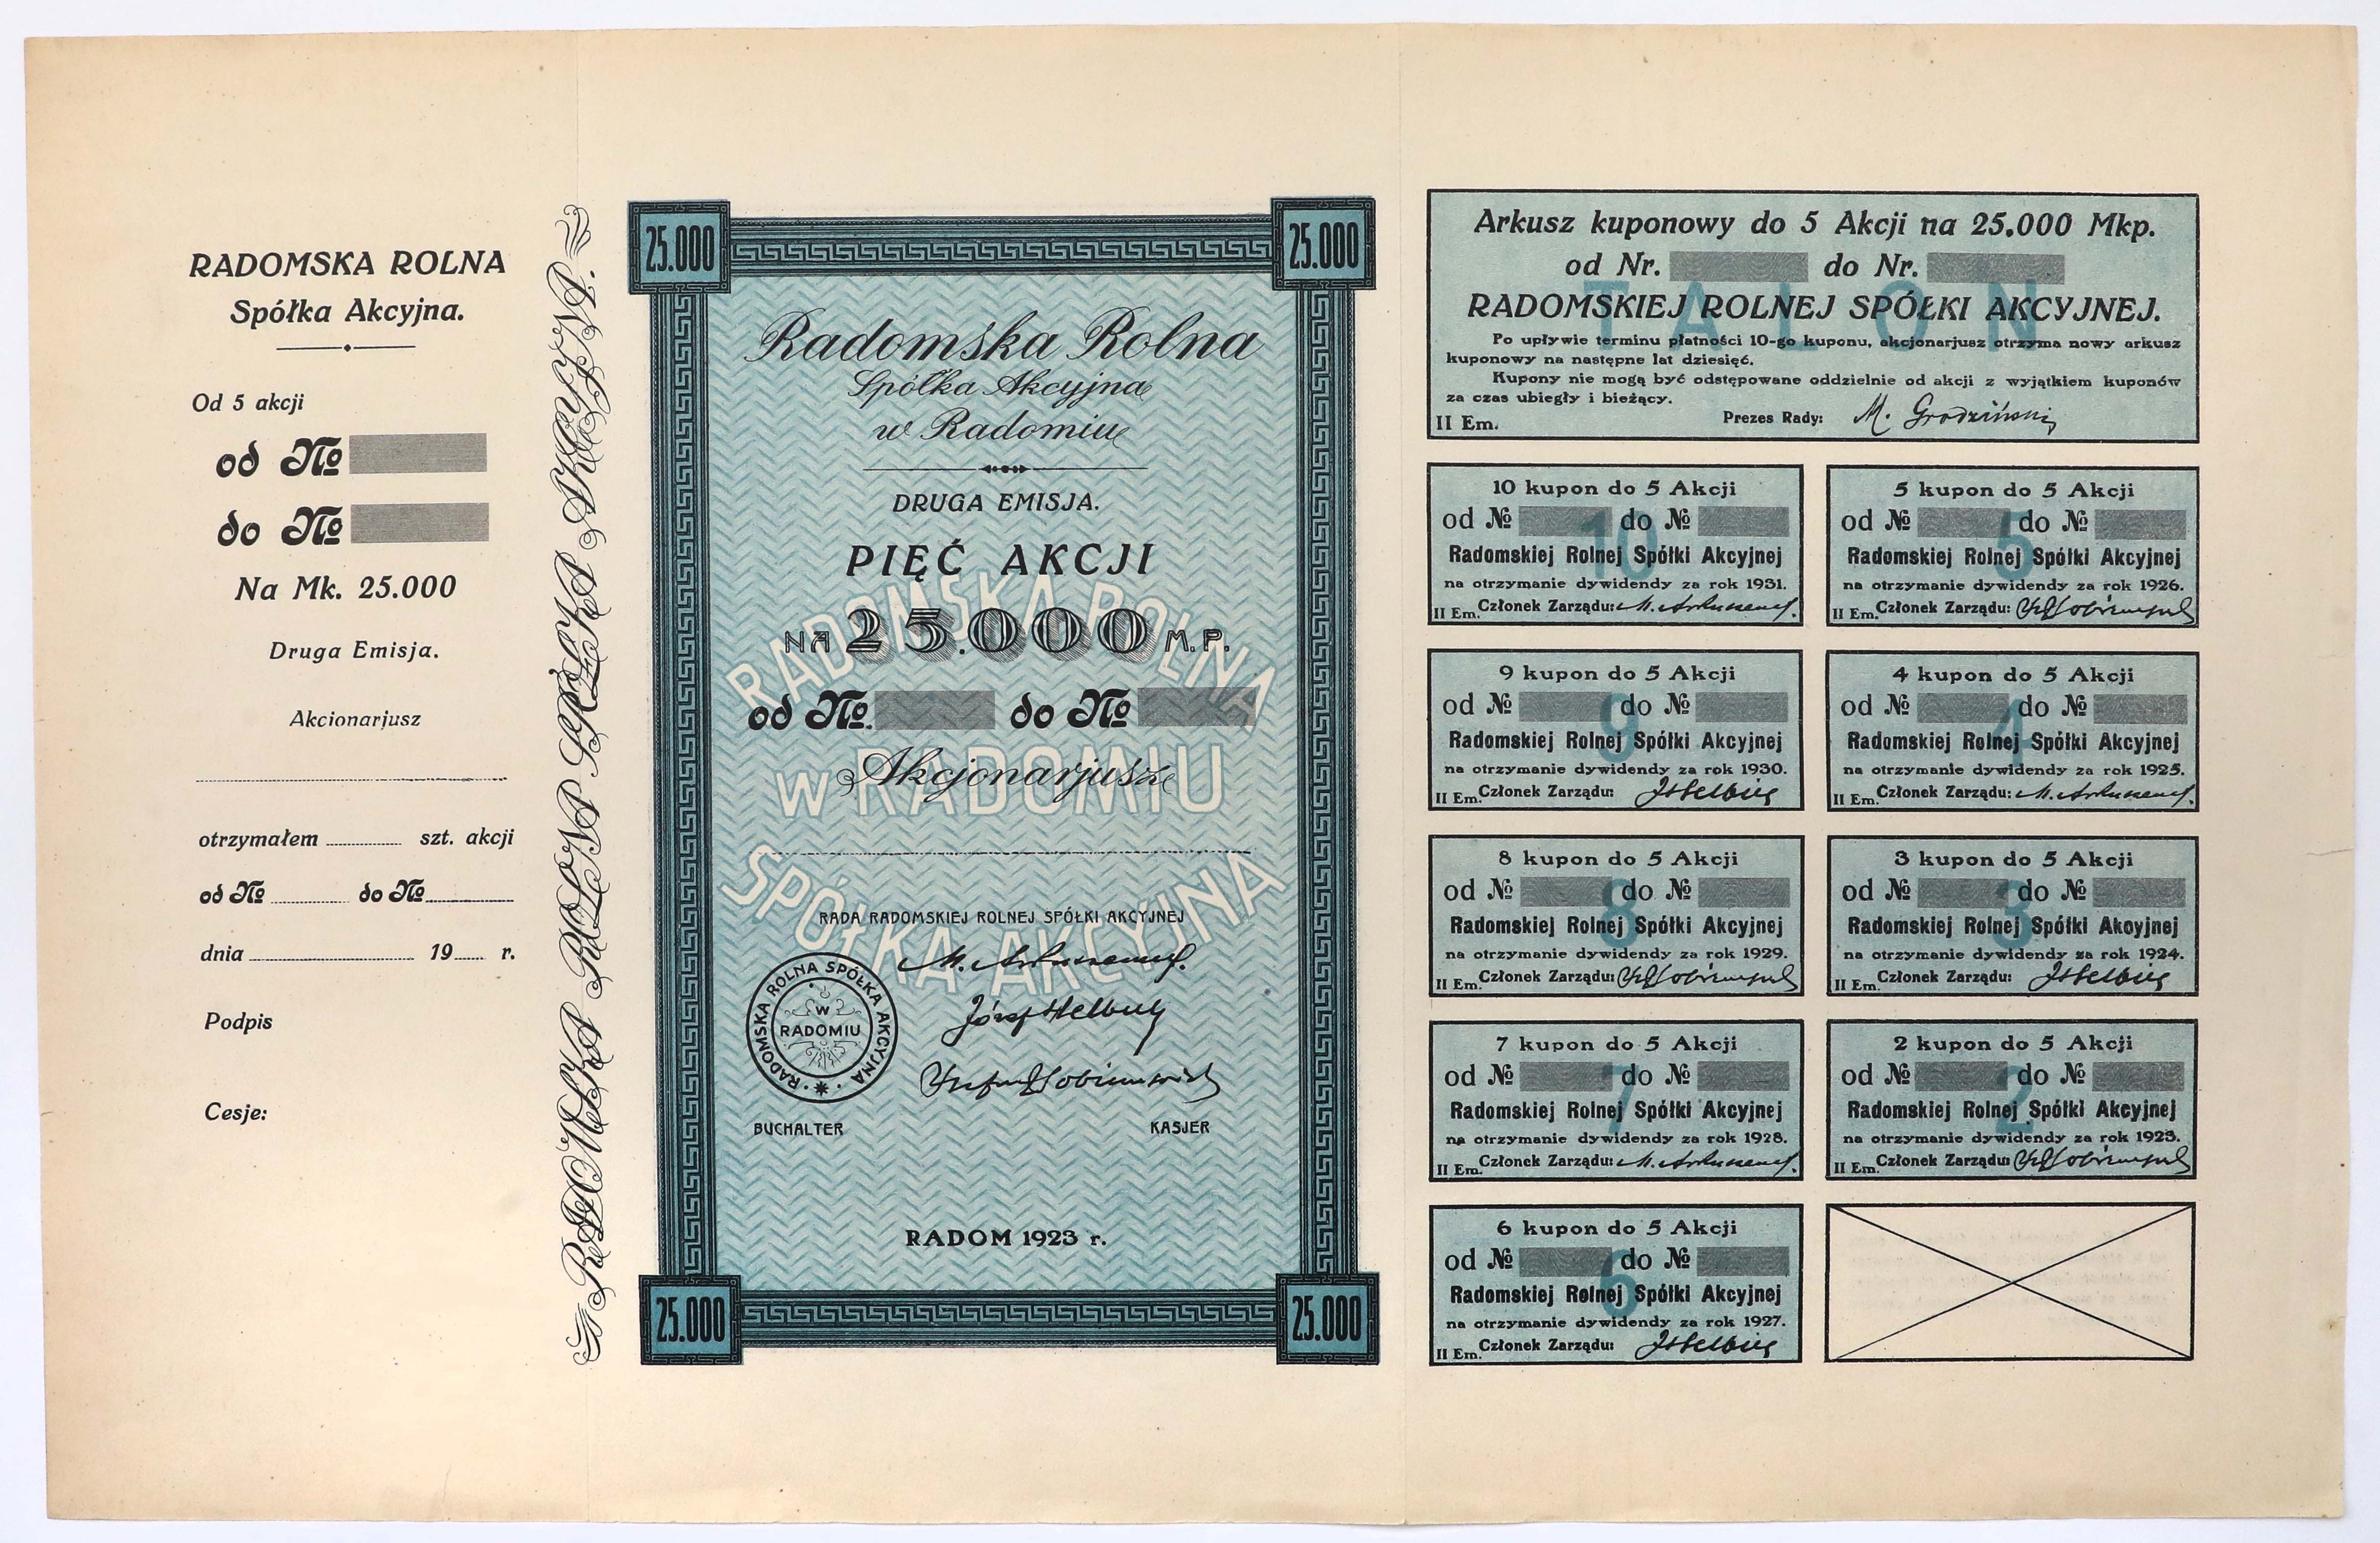 RADOMSKA ROLNA
Spółka Akcyjna.
Od 5 akcji
od №
do №
Na Mk. 25.000
Druga Emisja.
Akcionarjusz
otrzymałem szt. akcji
od № do №
dnia 19 r.
Podpis
Cesje:
RADOMSKA ROLNA SPÓŁKA AKCYJNA.
25.000
25.000
Radomska Rolna
Spółka Akcyjna
w Radomiu
DRUGA EMISJA.
PIĘĆ AKCJI
NA 25.000 M.P.
od №. do №
Akcjonarjusz
RADOMSKA ROLNA
w RADOMIU
SPÓŁKA AKCYJNA
RADA RADOMSKIEJ ROLNEJ SPÓŁKI AKCYJNEJ
RADOMSKA ROLNA SPÓŁKA AKCYJNA
W
RADOMIU
BUCHALTER KASJER
RADOM 1923 r.
25.000
25.000
Arkusz kuponowy do 5 Akcji na 25.000 Mkp.
od Nr. do Nr.
TALON
RADOMSKIEJ ROLNEJ SPÓŁKI AKCYJNEJ.
Po upływie terminu płatności 10-go kuponu, akcjonarjusz otrzyma nowy arkusz
kuponowy na następne lat dziesięć.
Kupony nie mogą być odstępowane oddzielnie od akcji z wyjątkiem kuponów
za czas ubiegły i bieżący.
II Em. Prezes Rady: M. Grodziński
10 kupon do 5 Akcji
od № do №
10
Radomskiej Rolnej Spółki Akcyjnej
na otrzymanie dywidendy za rok 1931.
II Em. Członek Zarządu:
5 kupon do 5 Akcji
od № do №
5
Radomskiej Rolnej Spółki Akcyjnej
na otrzymanie dywidendy za rok 1926.
II Em. Członek Zarządu:
9 kupon do 5 Akcji
od № do №
9
Radomskiej Rolnej Spółki Akcyjnej
na otrzymanie dywidendy za rok 1930.
II Em. Członek Zarządu:
4 kupon do 5 Akcji
od № do №
4
Radomskiej Rolnej Spółki Akcyjnej
na otrzymanie dywidendy za rok 1925.
II Em. Członek Zarządu:
8 kupon do 5 Akcji
od № do №
8
Radomskiej Rolnej Spółki Akcyjnej
na otrzymanie dywidendy za rok 1929.
II Em. Członek Zarządu:
3 kupon do 5 Akcji
od № do №
3
Radomskiej Rolnej Spółki Akcyjnej
na otrzymanie dywidendy za rok 1924.
II Em. Członek Zarządu:
7 kupon do 5 Akcji
od № do №
7
Radomskiej Rolnej Spółki Akcyjnej
na otrzymanie dywidendy za rok 1928.
II Em. Członek Zarządu:
2 kupon do 5 Akcji
od № do №
2
Radomskiej Rolnej Spółki Akcyjnej
na otrzymanie dywidendy za rok 1923.
II Em. Członek Zarządu:
6 kupon do 5 Akcji
od № do №
6
Radomskiej Rolnej Spółki Akcyjnej
na otrzymanie dywidendy za rok 1927.
II Em. Członek Zarządu: